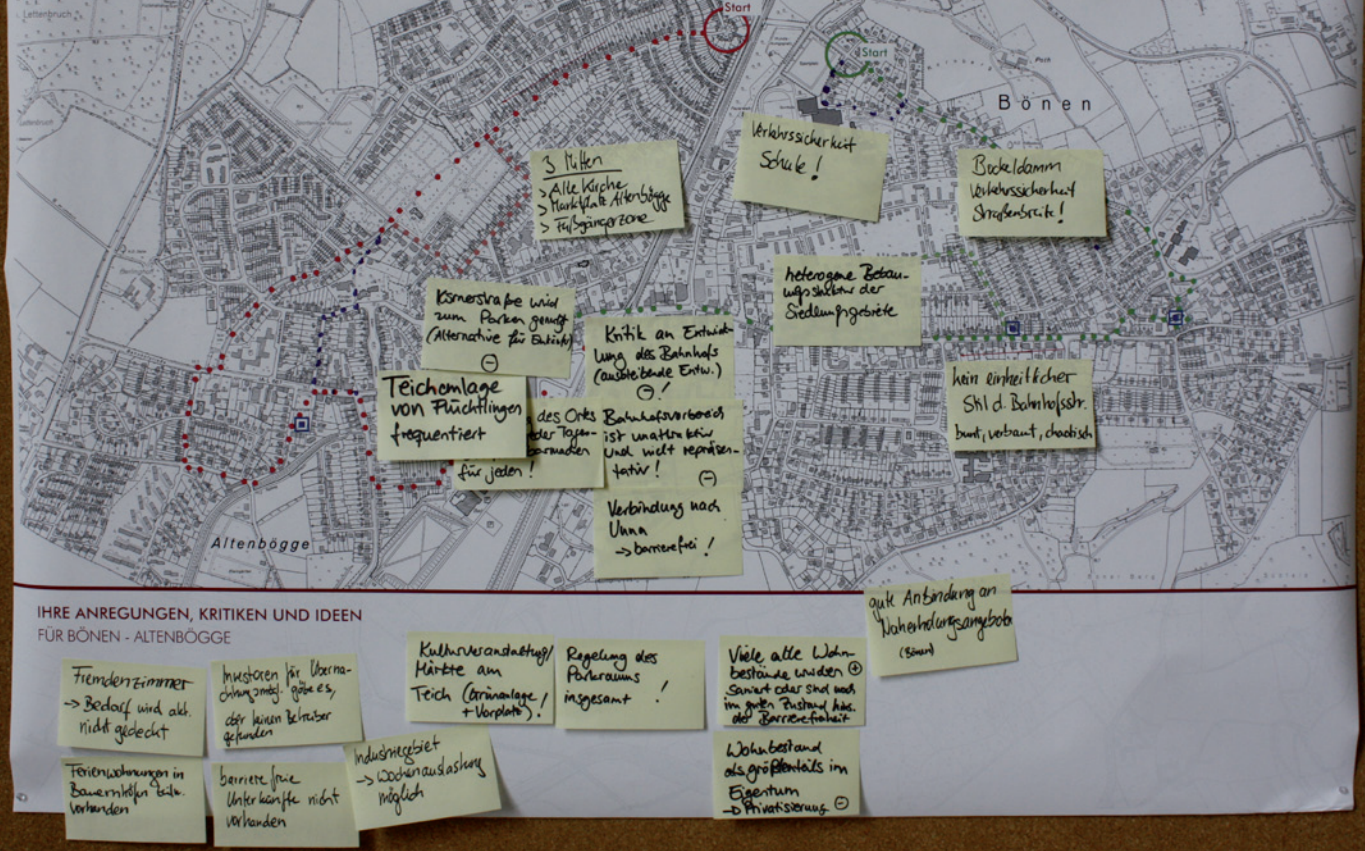 Lettenbruch
Start
Start
Bönen
3 Mitten
> Alte Kirche
> Marktplatz Altenbögge
> Fußgängerzone
Verkehrssicherheit
Schule!
Bockeldamm
Verkehrssicherheit
Straßenbreite!
heterogene Bebau-
ungsstruktur der
Siedlungsgebiete
wird
zum Parken genutzt
(Alternative für
⊖
Kritik an Entwick-
lung des Bahnhofs
(ausbleibende Entw.)
⊖!
kein einheitlicher
Stil d. Bahnhofsstr.
bunt, verbaut, chaotisch
Teichanlage
von Flüchtlingen
frequentiert
des Ortes
oder
für jeden!
Bahnhofsvorbereich
ist unattraktiv
und nicht repräsen-
tativ!
⊖
Verbindung nach
Unna
→ barrierefrei!
Altenbögge
IHRE ANREGUNGEN, KRITIKEN UND IDEEN
FÜR BÖNEN - ALTENBÖGGE
gute Anbindung an
Naherholungsangebote
(Bönen)
Fremdenzimmer
→ Bedarf wird akt.
nicht gedeckt
Investoren für Überna-
chtungsmögl. gäbe es,
aber keinen Betreiber
gefunden
Kulturveranstaltung/
Märkte am
Teich (Grünanlage/
+ Vorplatz)!
Regelung des
Parkraums
insgesamt !
Viele alte Wohn-
bestände wurden ⊕
saniert oder sind noch
im guten Zustand hins.
der Barrierefreiheit
Ferienwohnungen in
Bauernhöfen teilw.
vorhanden
barrierefreie
Unterkünfte nicht
vorhanden
Industriegebiet
→ Wochenauslastung
möglich
Wohnbestand
als größtenteils im
Eigentum
→ Privatisierung ⊖